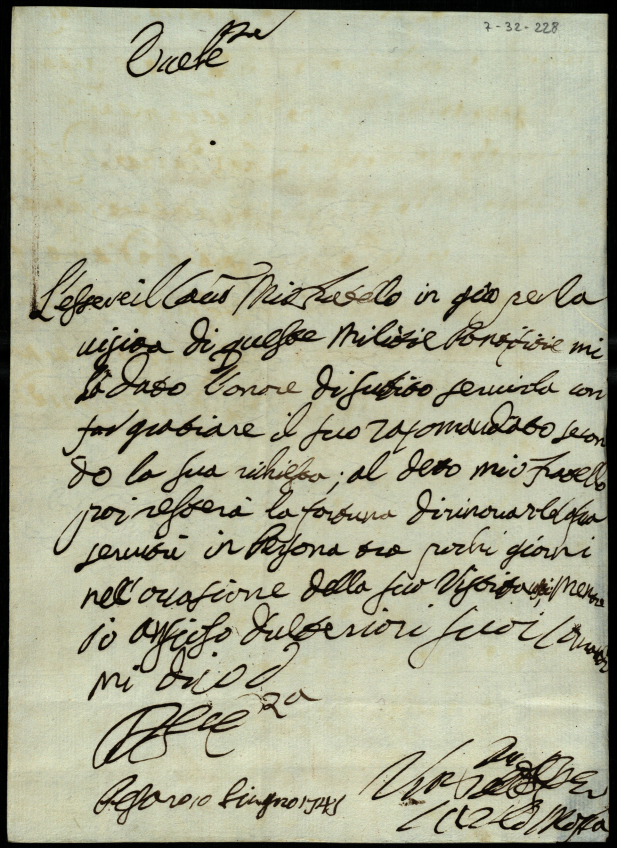 7-32-228
L'essere il Cav Mio Fratelo in giro per la
visita di queste Milizie Pontifizie mi
à dato l'onore di subito servirla con
far graziare il suo racomandato secon
do la sua richiesta; al deto mio fratello
poi resterà la fortuna di rinovarle sua
servitù in Persona tra pochi giorni
nell'ocasione della sua Visita, Mentre
io ansioso d'ulteriori suoi Coman
mi dico
Pesaro 10 Giugno 1745
Mosca